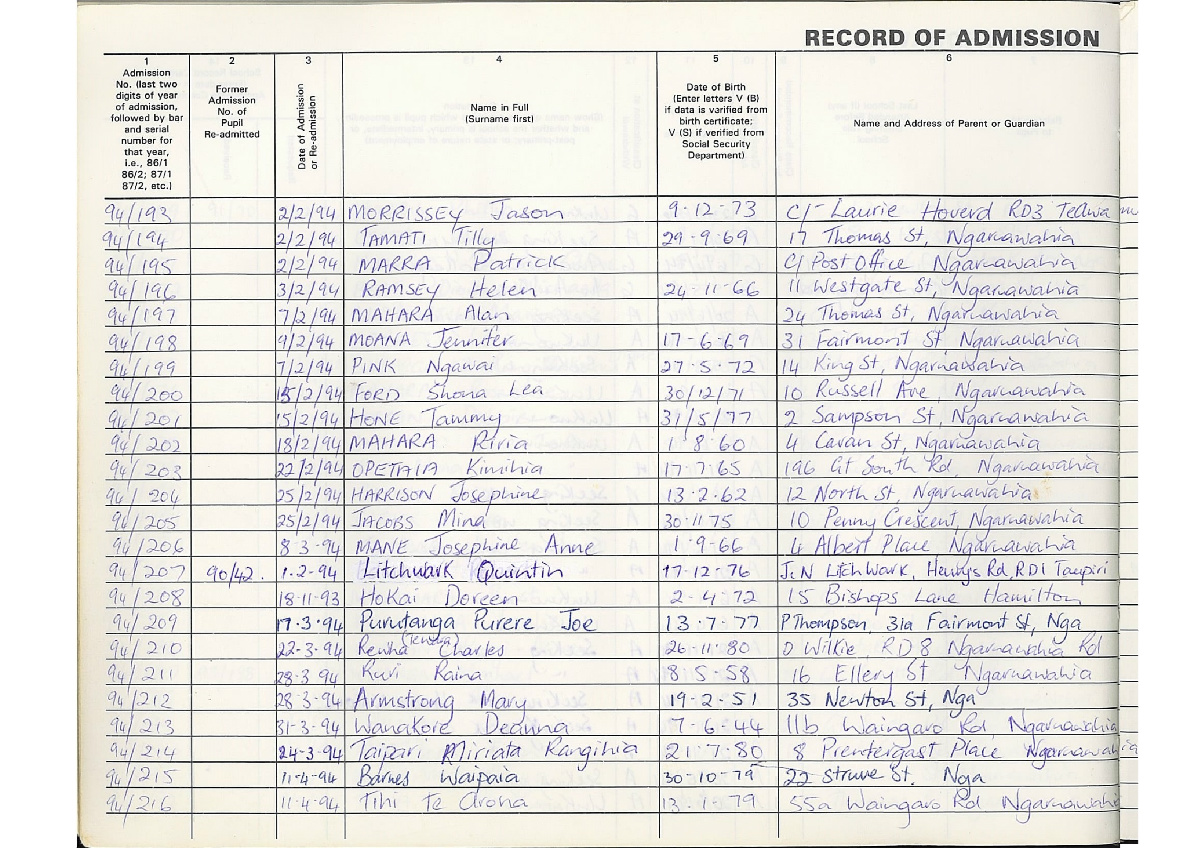 RECORD OF ADMISSION
1 2 3 4 5 6
Admission No. (last two digits of year of admission, followed by bar and serial number for that year, i.e., 86/1 86/2; 87/1 87/2, etc.)
Former Admission No. of Pupil Re-admitted
Date of Admission or Re-admission
Name in Full (Surname first)
Date of Birth (Enter letters V (B) if data is verified from birth certificate; V (S) if verified from Social Security Department)
Name and Address of Parent or Guardian
94/193 2/2/94 MORRISSEY Jason 9-12-73 C/- Laurie Hoverd RD3
94/194 2/2/94 TAMATI Tilly 29-9-69 17 Thomas St, Ngaruawahia
94/195 2/2/94 MARRA Patrick C/ Post Office Ngaruawahia
94/196 3/2/94 RAMSEY Helen 24-11-66 11 Westgate St, Ngaruawahia
94/197 7/2/94 MAHARA Alan 24 Thomas St, Ngaruawahia
94/198 9/2/94 MOANA Jennifer 17-6-69 31 Fairmont St, Ngaruawahia
94/199 7/2/94 PINK Ngawai 27-5-72 14 King St, Ngaruawahia
94/200 15/2/94 FORD Shona Lea 30/12/71 10 Russell Ave, Ngaruawahia
94/201 15/2/94 HONE Tammy 31/5/77 2 Sampson St, Ngaruawahia
94/202 18/2/94 MAHARA Riria 1-8-60 4 Cavan St, Ngaruawahia
94/203 22/2/94 OPETAIA Kimihia 17-7-65 196 Gt South Rd, Ngaruawahia
94/204 25/2/94 HARRISON Josephine 13-2-62 12 North St, Ngaruawahia
94/205 25/2/94 JACOBS Mina 30-11-75 10 Penny Crescent, Ngaruawahia
94/206 8-3-94 MANE Josephine Anne 1-9-66 4 Albert Place Ngaruawahia
94/207 90/42. 1-2-94 Litchwark Quintin 17-12-76 J.N Litchwark, Henrys Rd, RD1 Taupiri
94/208 18-11-93 Hokai Doreen 2-4-72 15 Bishops Lane Hamilton
94/209 17-3-94 Purutanga Purere Joe 13-7-77 P Thompson, 31a Fairmont St, Nga
94/210 22-3-94 Rewha Charles 26-11-80 D Wilkie, RD8 Ngaruawahia Rd
94/211 28-3 94 Ruri Raina 18-5-58 16 Ellery St Ngaruawahia
94/212 28-3-94 Armstrong Mary 19-2-51 35 Newton St, Nga
94/213 31-3-94 Wanakore Deanna 7-6-44 11b Waingaro Rd, Ngaruawahia
94/214 24-3-94 Taipari Miriata Rangihia 21-7-80 8 Prentergast Place Ngaruawahia
94/215 11-4-94 Barnes Waipaia 30-10-79 22 Struve St. Nga
94/216 11-4-94 Tihi Te Arona 13-1-79 55a Waingaro Rd Ngaruawahi